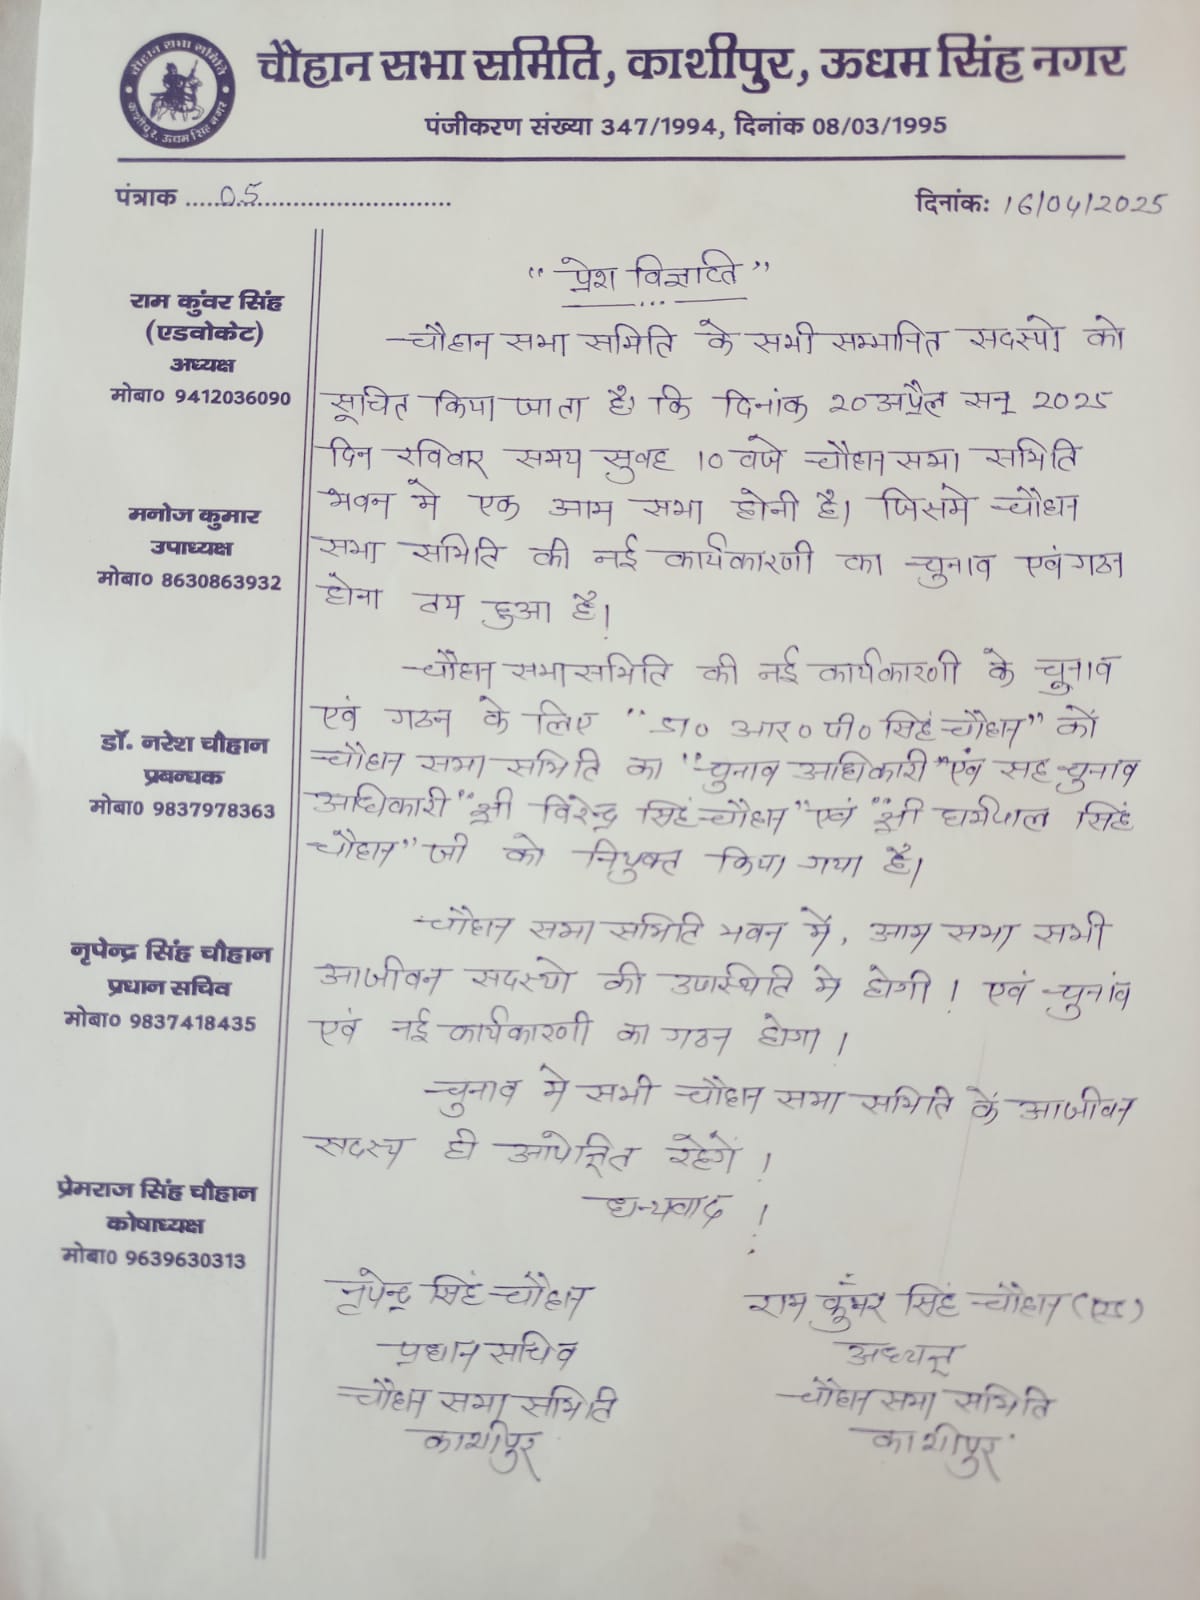 चौहान सभा समिति
काशीपुर, ऊधम सिंह नगर
चौहान सभा समिति, काशीपुर, ऊधम सिंह नगर
पंजीकरण संख्या 347/1994, दिनांक 08/03/1995
पंत्राक ....05....................................
दिनांकः 16/04/2025
राम कुंवर सिंह
(एडवोकेट)
अध्यक्ष
मोबा0 9412036090
मनोज कुमार
उपाध्यक्ष
मोबा0 8630863932
डॉ. नरेश चौहान
प्रबन्धक
मोबा0 9837978363
नृपेन्द्र सिंह चौहान
प्रधान सचिव
मोबा0 9837418435
प्रेमराज सिंह चौहान
कोषाध्यक्ष
मोबा0 9639630313
“प्रेश विज्ञप्ति”
चौहान सभा समिति के सभी सम्मानित सदस्यो को
सूचित किया जाता है। कि दिनांक 20 अप्रैल सन् 2025
दिन रविवार समय सुवह 10 वजे चौहान सभा समिति
भवन मे एक आम सभा होनी है। जिसमे चौहान
सभा समिति की नई कार्यकारणी का चुनाव एवं गठन
होना तय हुआ है।
चौहान सभा समिति की नई कार्यकारणी के चुनाव
एवं गठन के लिए “डा० आर० पी० सिहं चौहान” कों
चौहान सभा समिति का “चुनाव अधिकारी” एवं सह चुनाव
अधिकारी “श्री विरेन्द्र सिहं चौहान” एवं “श्री धर्मपाल सिहं
चौहान” जी को नियुक्त किया गया है।
चौहान सभा समिति भवन में, आम सभा सभी
आजीवन सदस्यो की उपस्थिति मे होगी। एवं चुनांव
एवं नई कार्यकारणी का गठन होगा।
चुनाव मे सभी चौहान सभा समिति कें आजीवन
सदस्य ही आपेक्षित रहेगें।
धन्यवाद!
नृपेन्द्र सिहं चौहान
प्रधान सचिव
चौहान सभा समिति
काशीपुर
राम कुँवर सिहं चौहान (एड)
अध्यक्ष
चौहान सभा समिति
काशीपुर